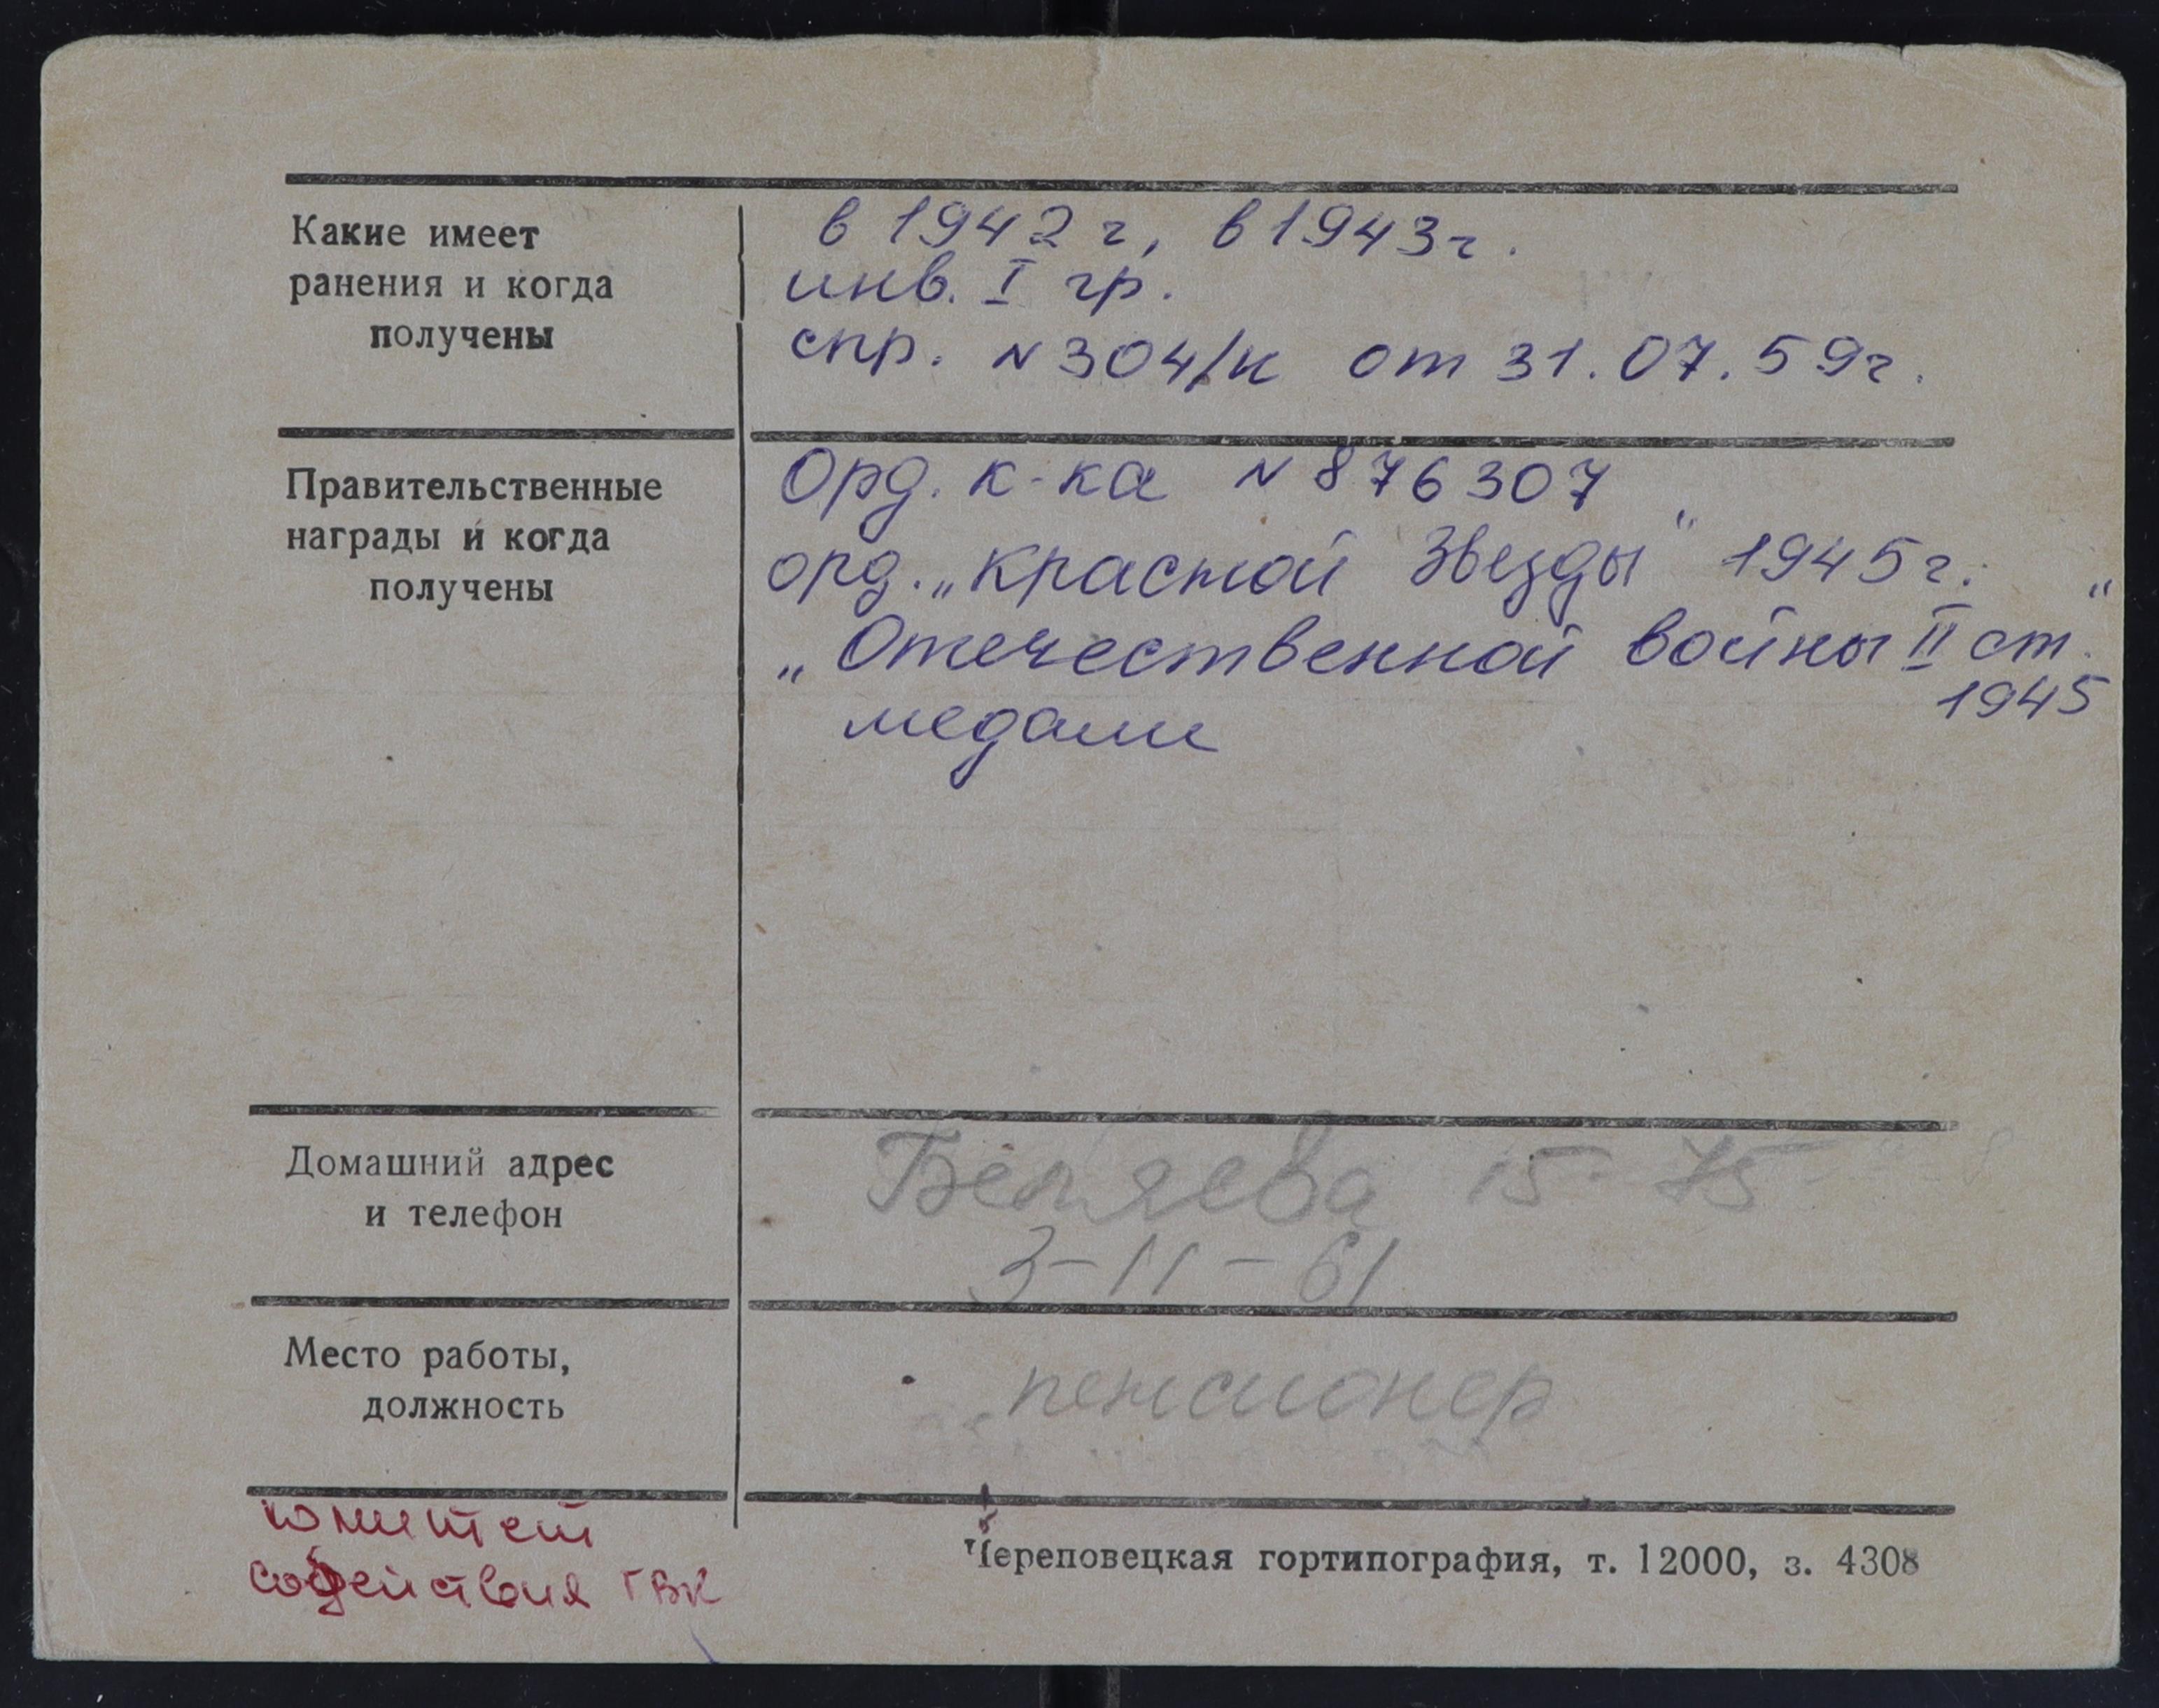 Какие имеет
ранения и когда
получены
в 1942 г, в 1943 г.
инв. I гр.
спр. № 304/н от 31.07.59г.
Правительственные
награды и когда
получены
Орд. к-ка № 876307
орд. „Красной Звезды" 1945г.
„Отечественной войны II ст."
1945
медали
Домашний адрес
и телефон
Беляева 15-75
3-11-61
Место работы,
должность
пенсионер
комитет
содействия ГВК
Череповецкая гортипография, т. 12000, з. 4308